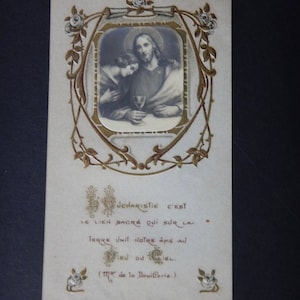 L'EUCHARISTIE C'EST
LE LIEN SACRÉ QUI SUR LA
TERRE UNIT NOTRE ÂME AU
DIEU DU CIEL
(Mgr de la Bouillerie).